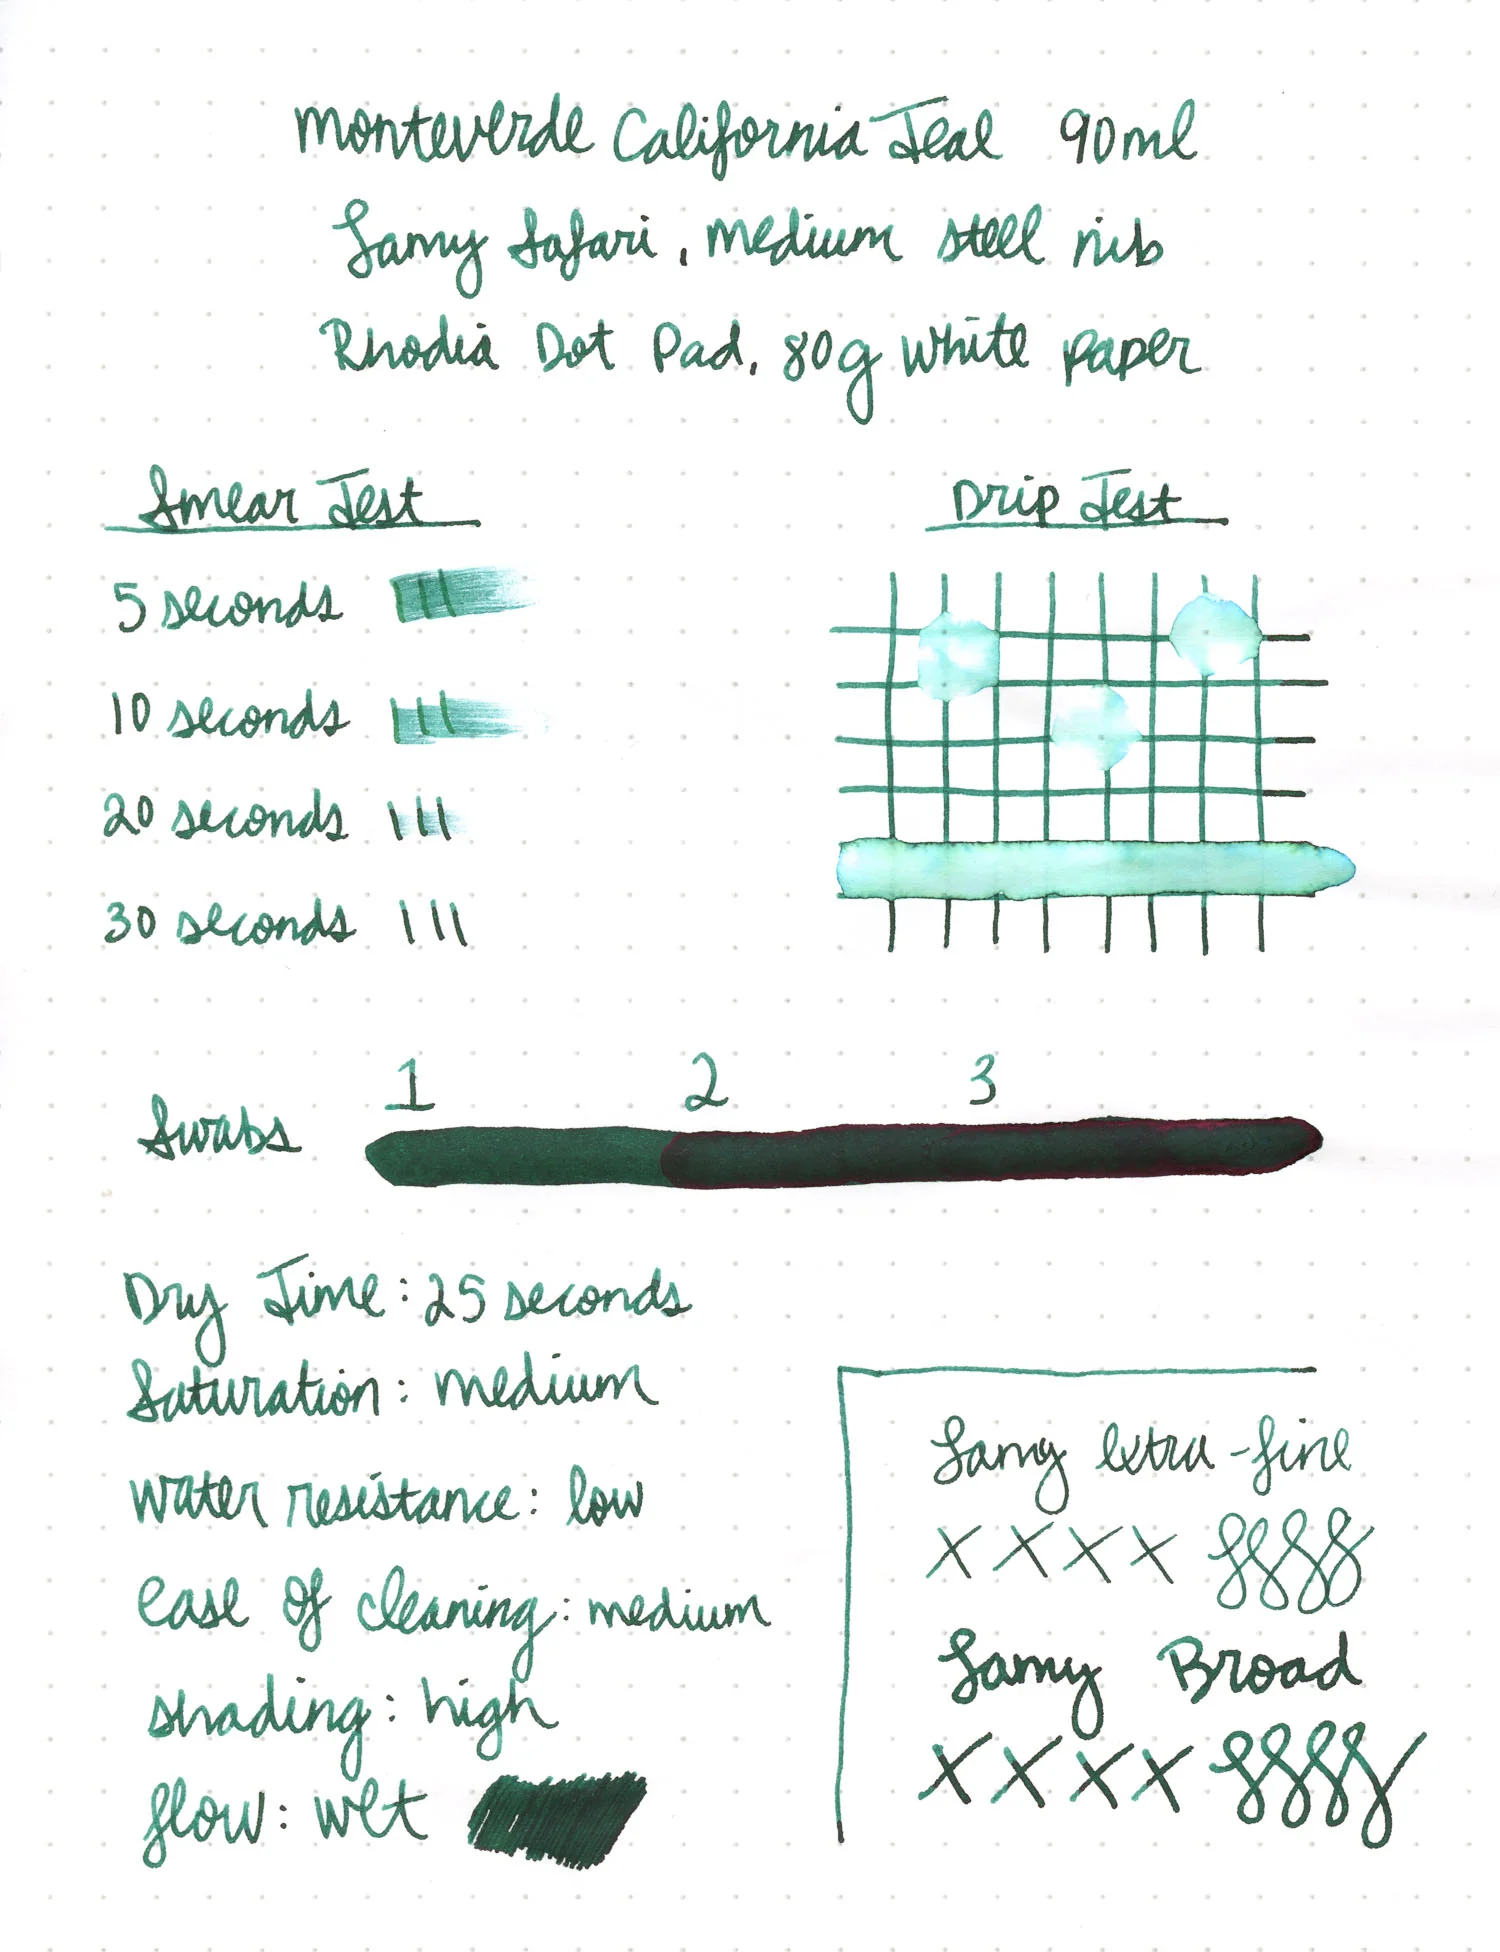 Monteverde California Teal 90ml
Lamy Safari, medium steel nib
Rhodia Dot Pad, 80g white paper
Smear Test
5 seconds
10 seconds
20 seconds
30 seconds
Drip Test
Swabs
1 2 3
Dry Time: 25 seconds
Saturation: medium
Water resistance: low
ease of cleaning: medium
shading: high
flow: wet
Lamy extra-fine
x x x x
Lamy Broad
x x x x